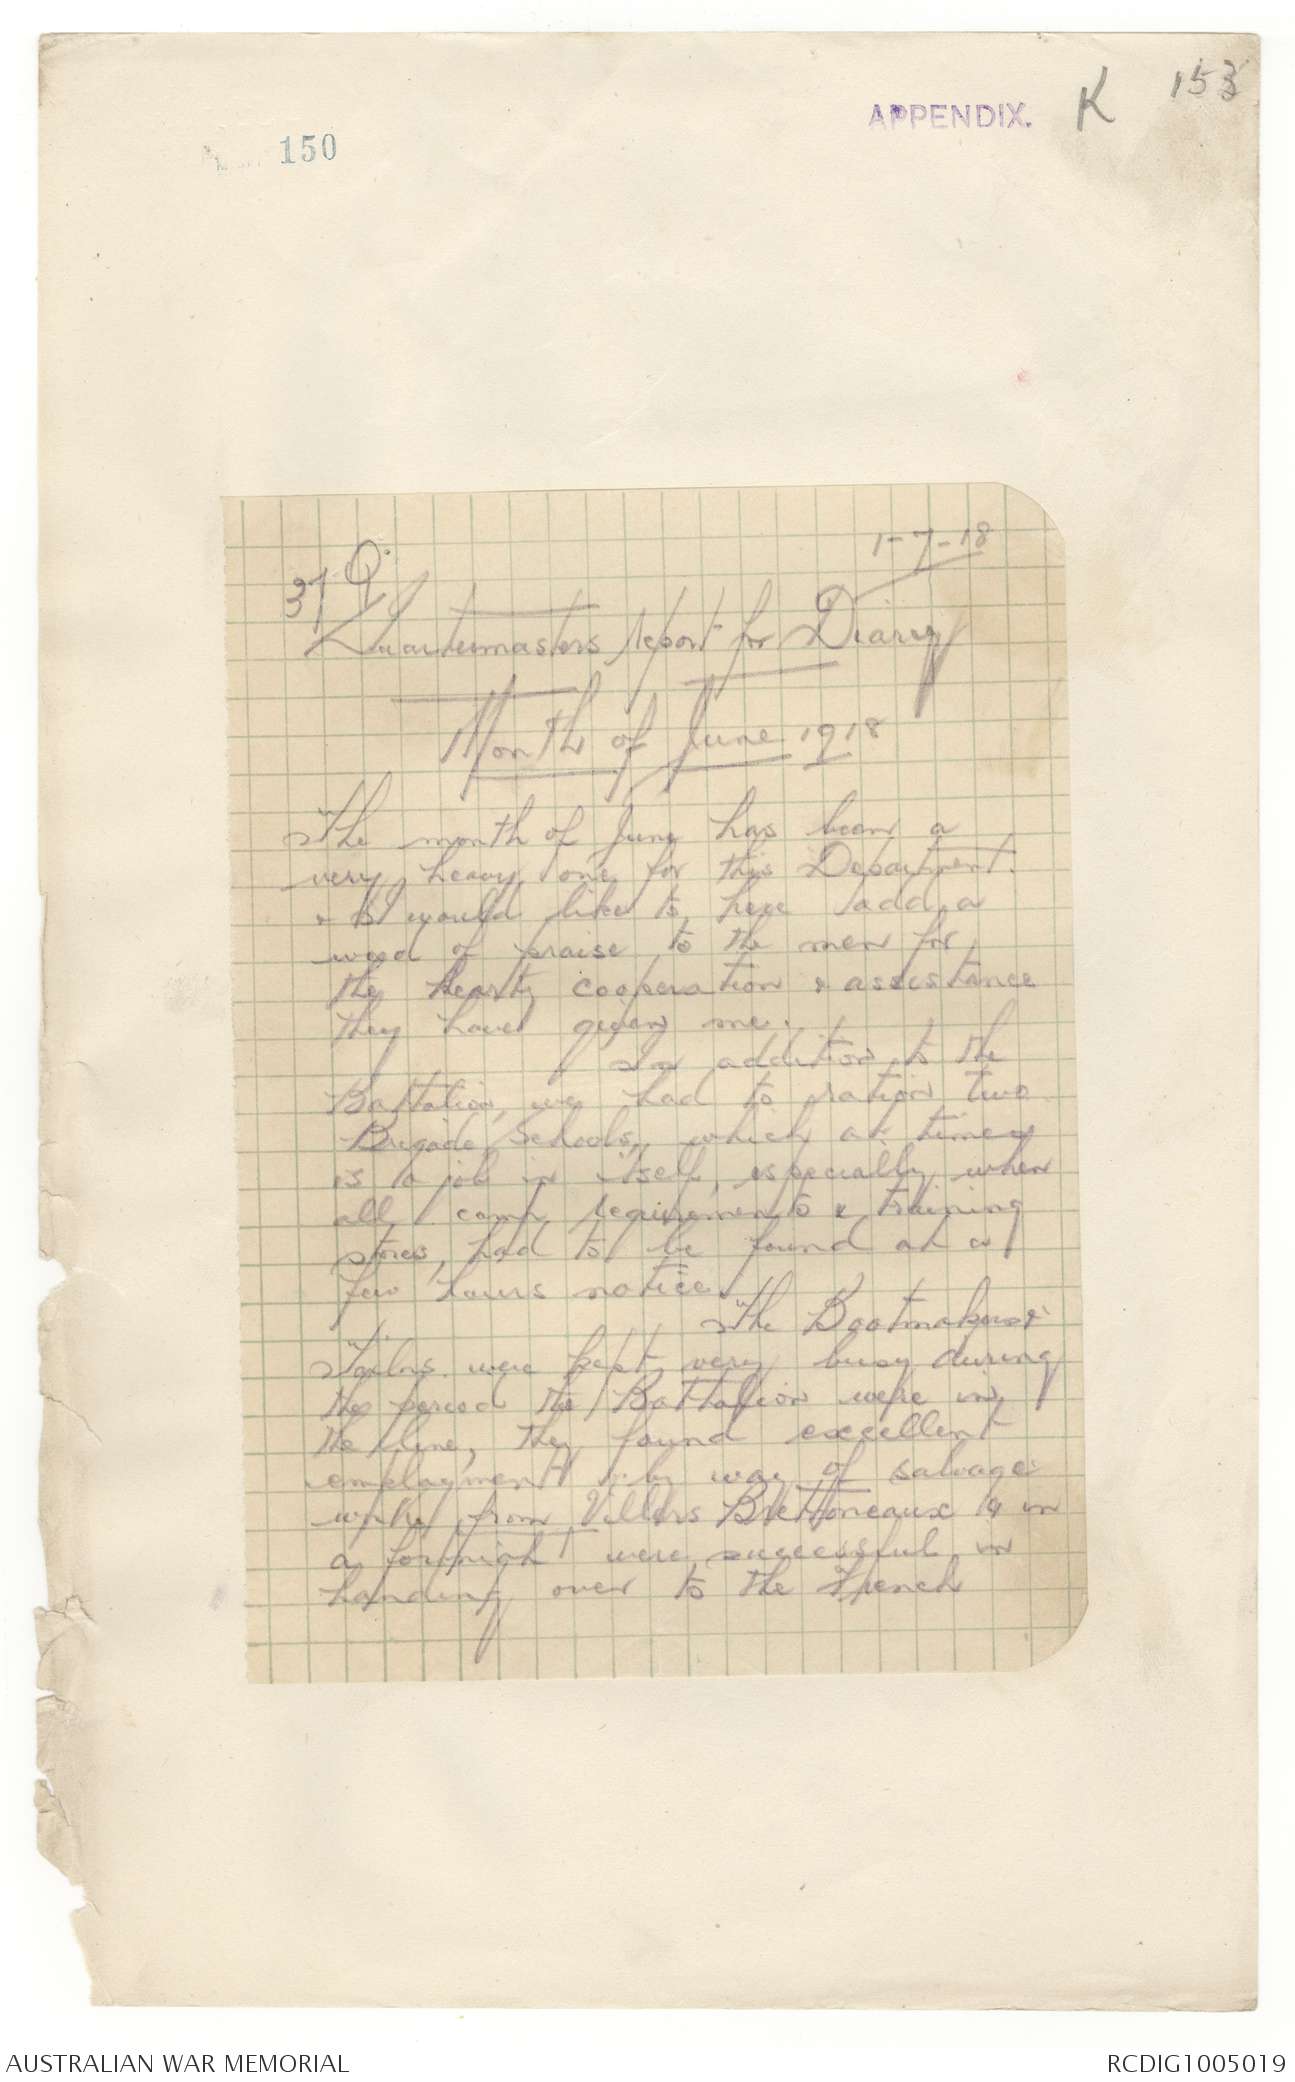 APPENDIX. K 153
150
1-7-18
37 Q.
Quartermasters report for Diary
Month of June 1918
The month of June has been a
very heavy one for this Department.
& I would like to here add a
word of praise to the men for
the hearty cooperation & assistance
they have given me.
In addition to the
Battalion, we had to ration two
Brigade Schools, which at times
is a job in itself, especially when
all camp requirements & training
stores, had to be found at a
few hours notice.
The Bootmakers &
Tailors were kept very busy during
the period the Battalion were in
the line, they found excellent
employment by way of salvage
work from Villers Brettoneaux & in
a fortnight were successful in
handing over to the French
AUSTRALIAN WAR MEMORIAL
RCDIG1005019